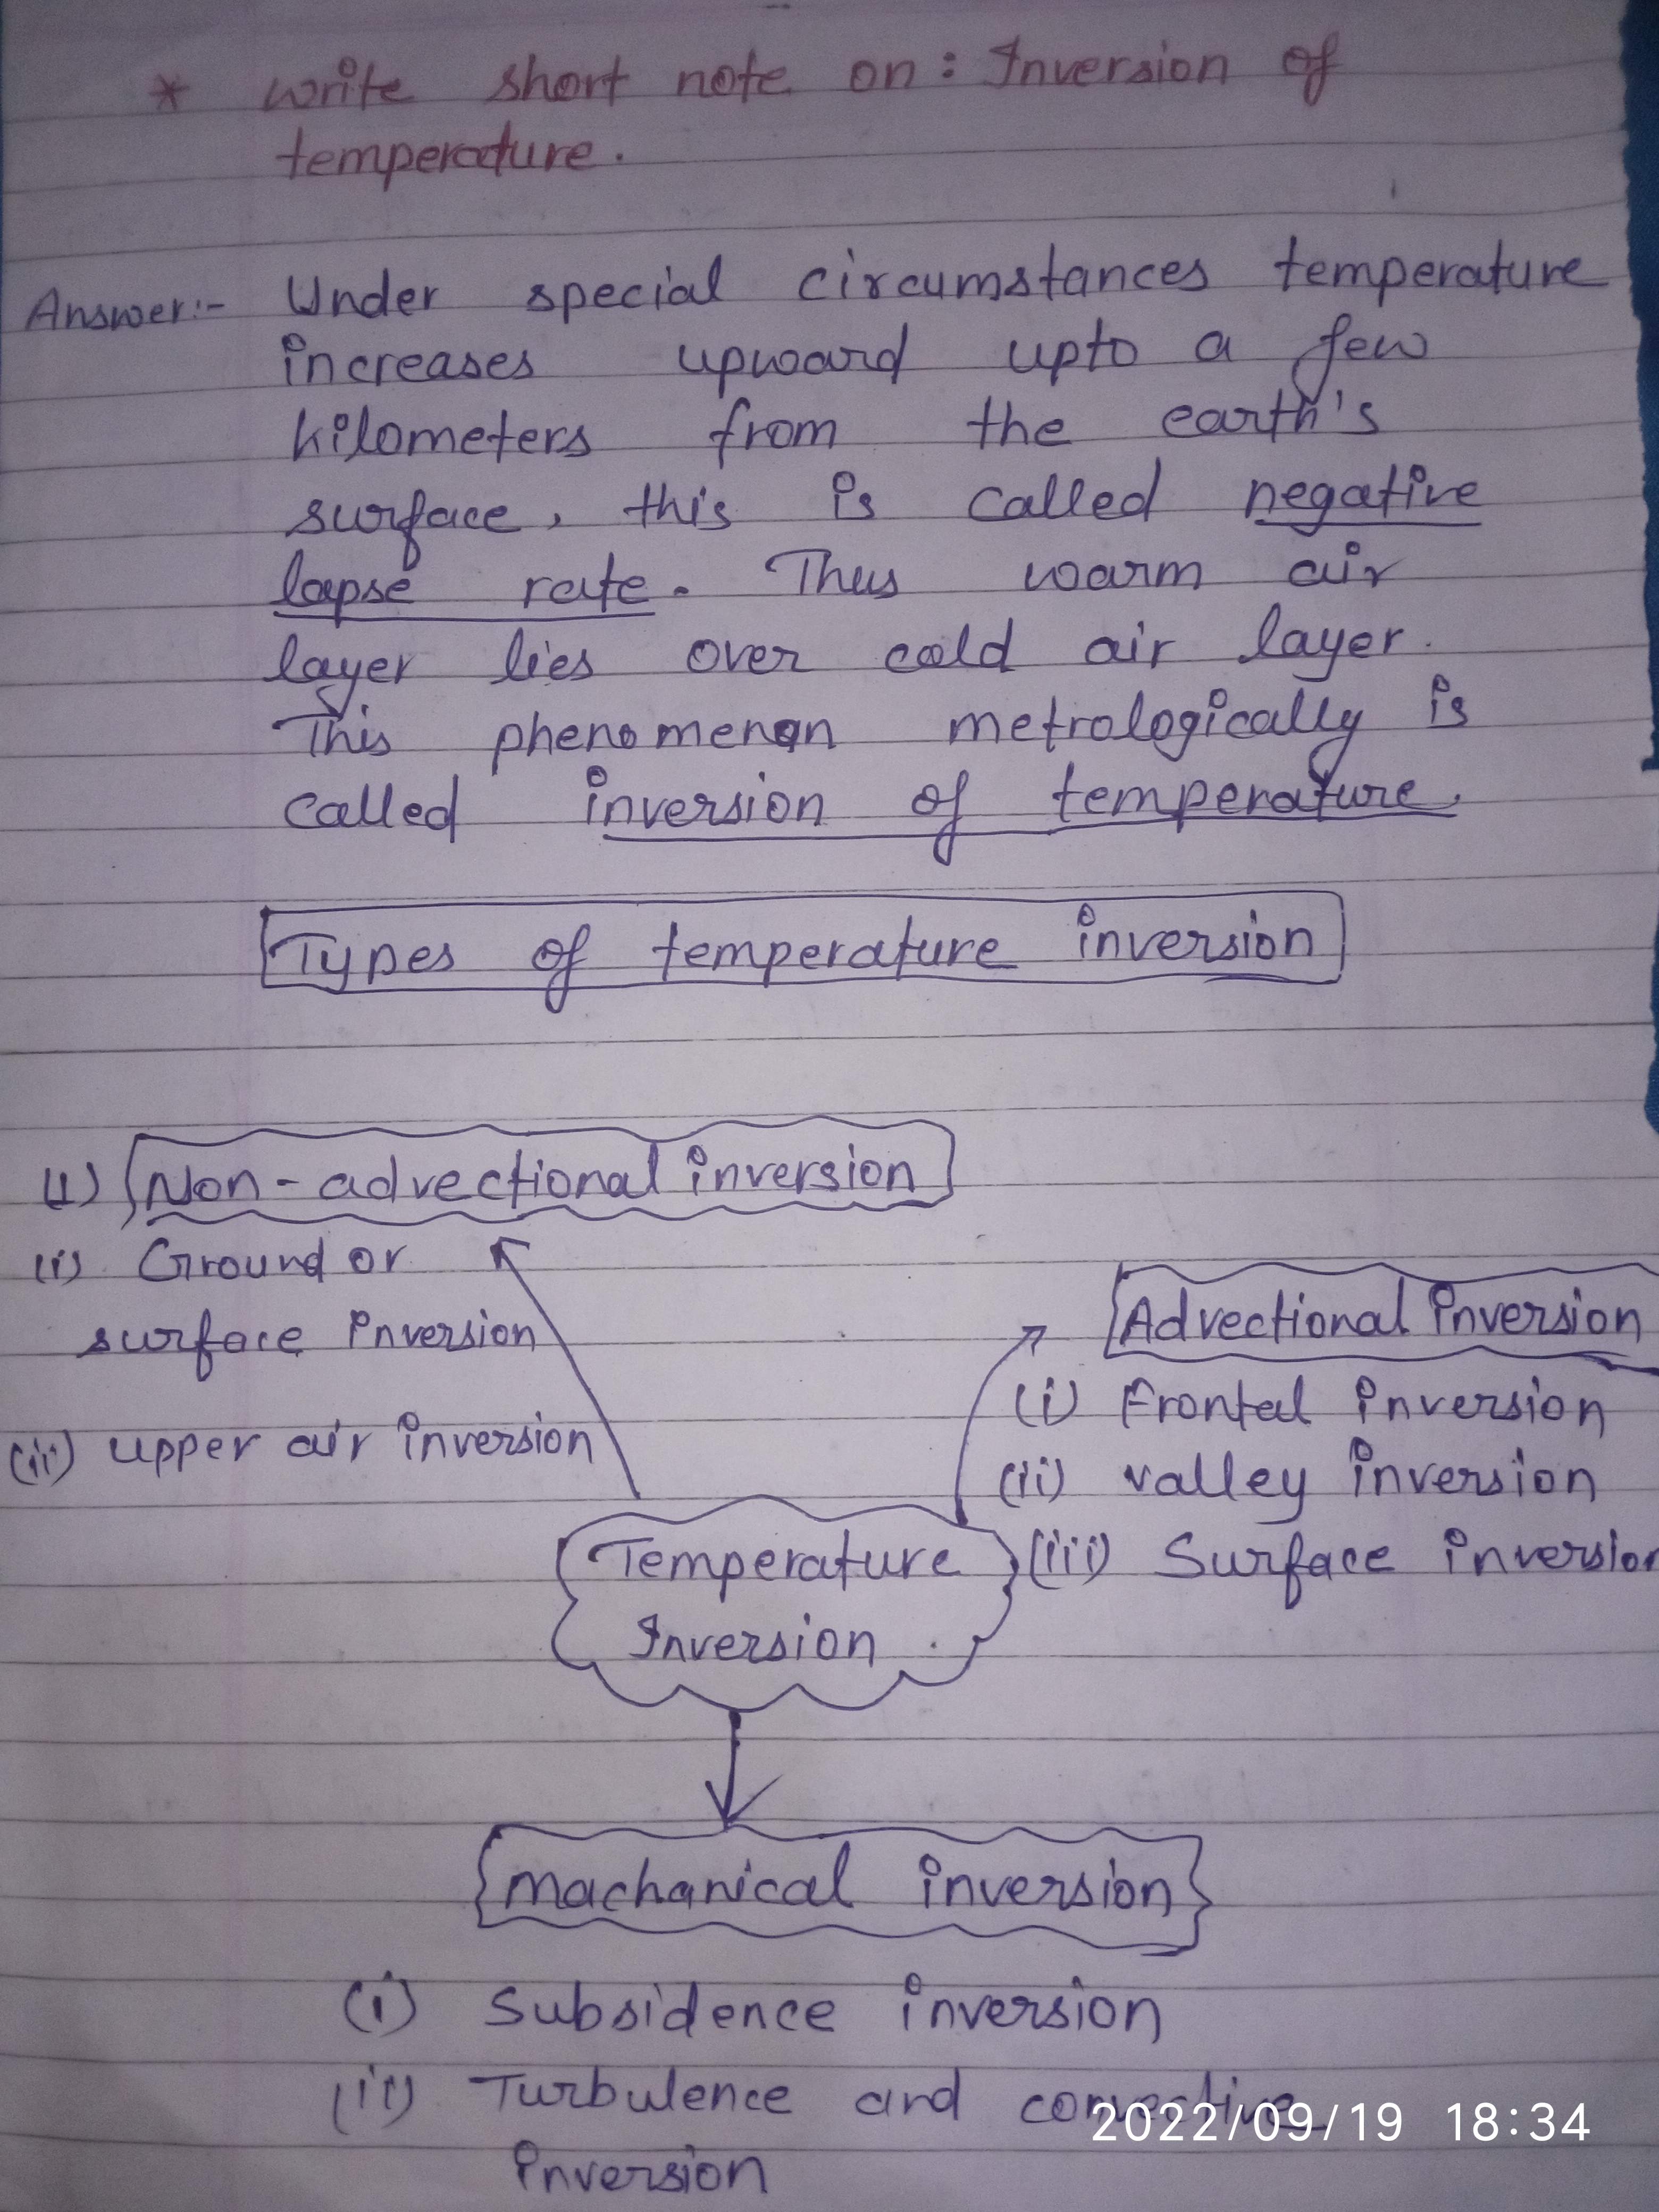 * write short note on: Inversion of
temperature.
Answer:- Under special circumstances temperature
increases upward upto a few
kilometers from the earth's
surface, this is called negative
lapse rate. Thus warm air
layer lies over cold air layer.
This phenomenon metrologically is
called inversion of temperature.
Types of temperature inversion
(1) Non-advectional inversion
(i) Ground or
surface inversion
(ii) upper air inversion
Advectional inversion
(i) Frontal inversion
(ii) valley inversion
(iii) Surface inversion
Temperature
Inversion
Machanical inversion
(i) Subsidence inversion
(ii) Turbulence and convective
inversion
2022/09/19 18:34